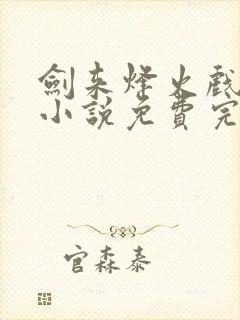 劍来烽火戲
小說免費完
官森泰